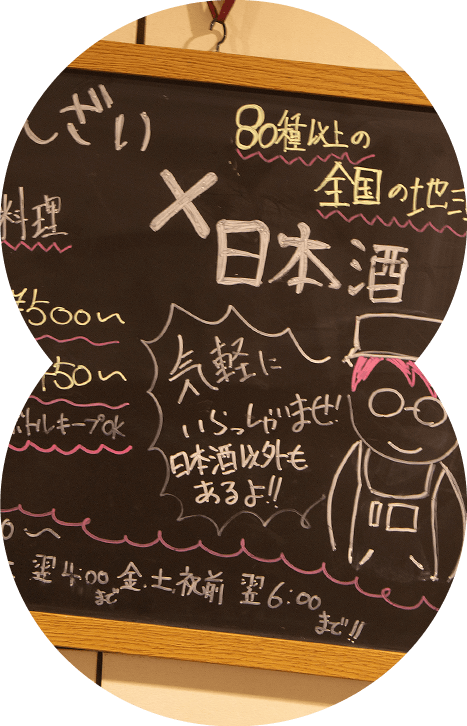 しざい
80種以上の
全国の地
料理
×
日本酒
¥500〜
気軽に
いらっしゃいませ!
日本酒以外も
あるよ!!
150〜
ボトルキープOK
0〜
翌4:00まで 金.土.祝前 翌6:00まで!!